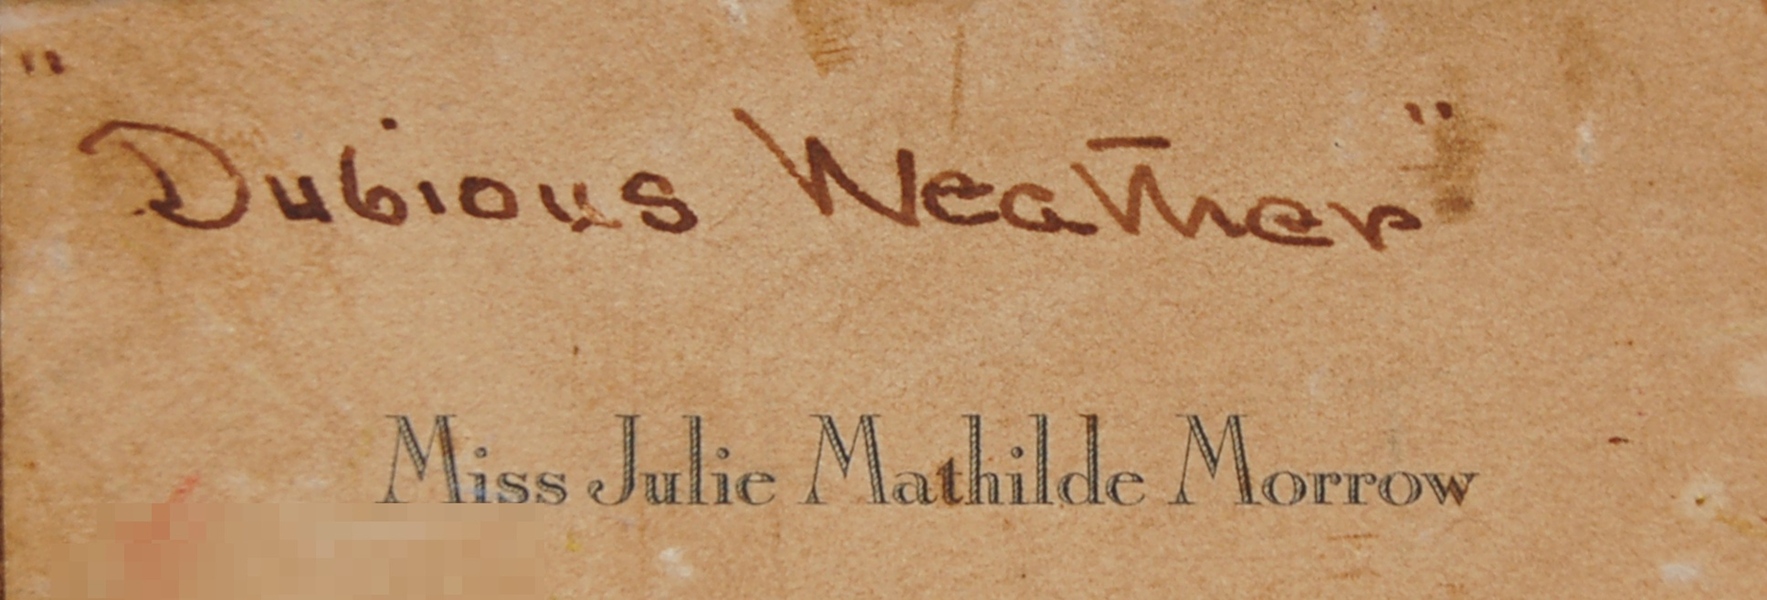 "Dubious Weather"
Miss Julie Mathilde Morrow